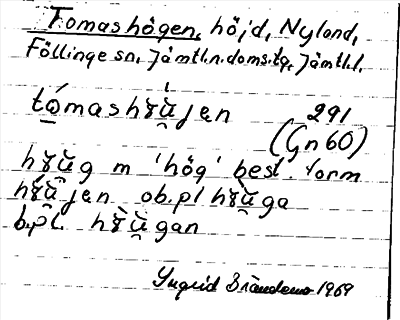 Tomashögen, höjd, Nyland,
Föllinge sn, Jämtl.n.doms.tg, Jämtl.l.
tómashɤ̀ṳ̀jen 291
(Gn 60)
hɤṳg m 'hög' best. form
hɤṳjen ob.pl hɤ̀ṳga
b.pl. hɤ̀ṳ̀gan
Yngrid 1969